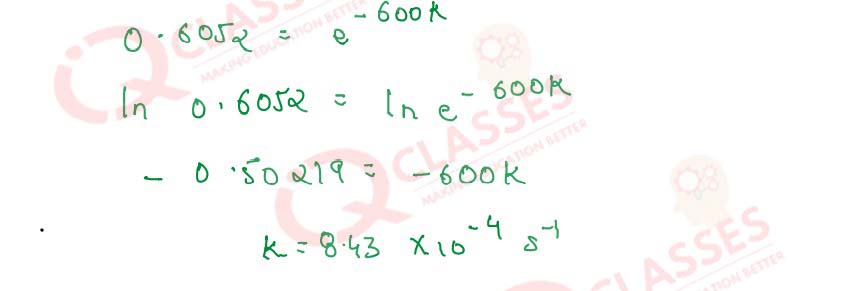 0.6052 = e^-600k
ln 0.6052 = ln e^-600k
- 0.50219 = -600k
k = 8.43 ×10^-4 s^-1
IQ CLASSES
MAKING EDUCATION BETTER
IQ CLASSES
MAKING EDUCATION BETTER
CLASSES
EDUCATION BETTER